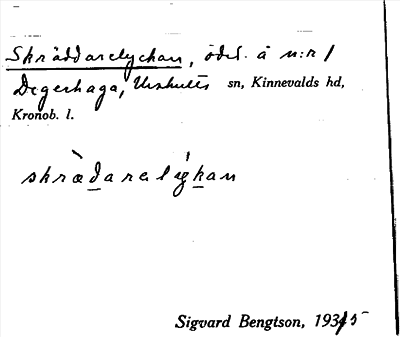 Skräddarelyckan, ödet. å n:r 1
Degerhaga, Urshults sn, Kinnevalds hd,
Kronob. l.
skræ̀darelýkan
Sigvard Bengtson, 1935